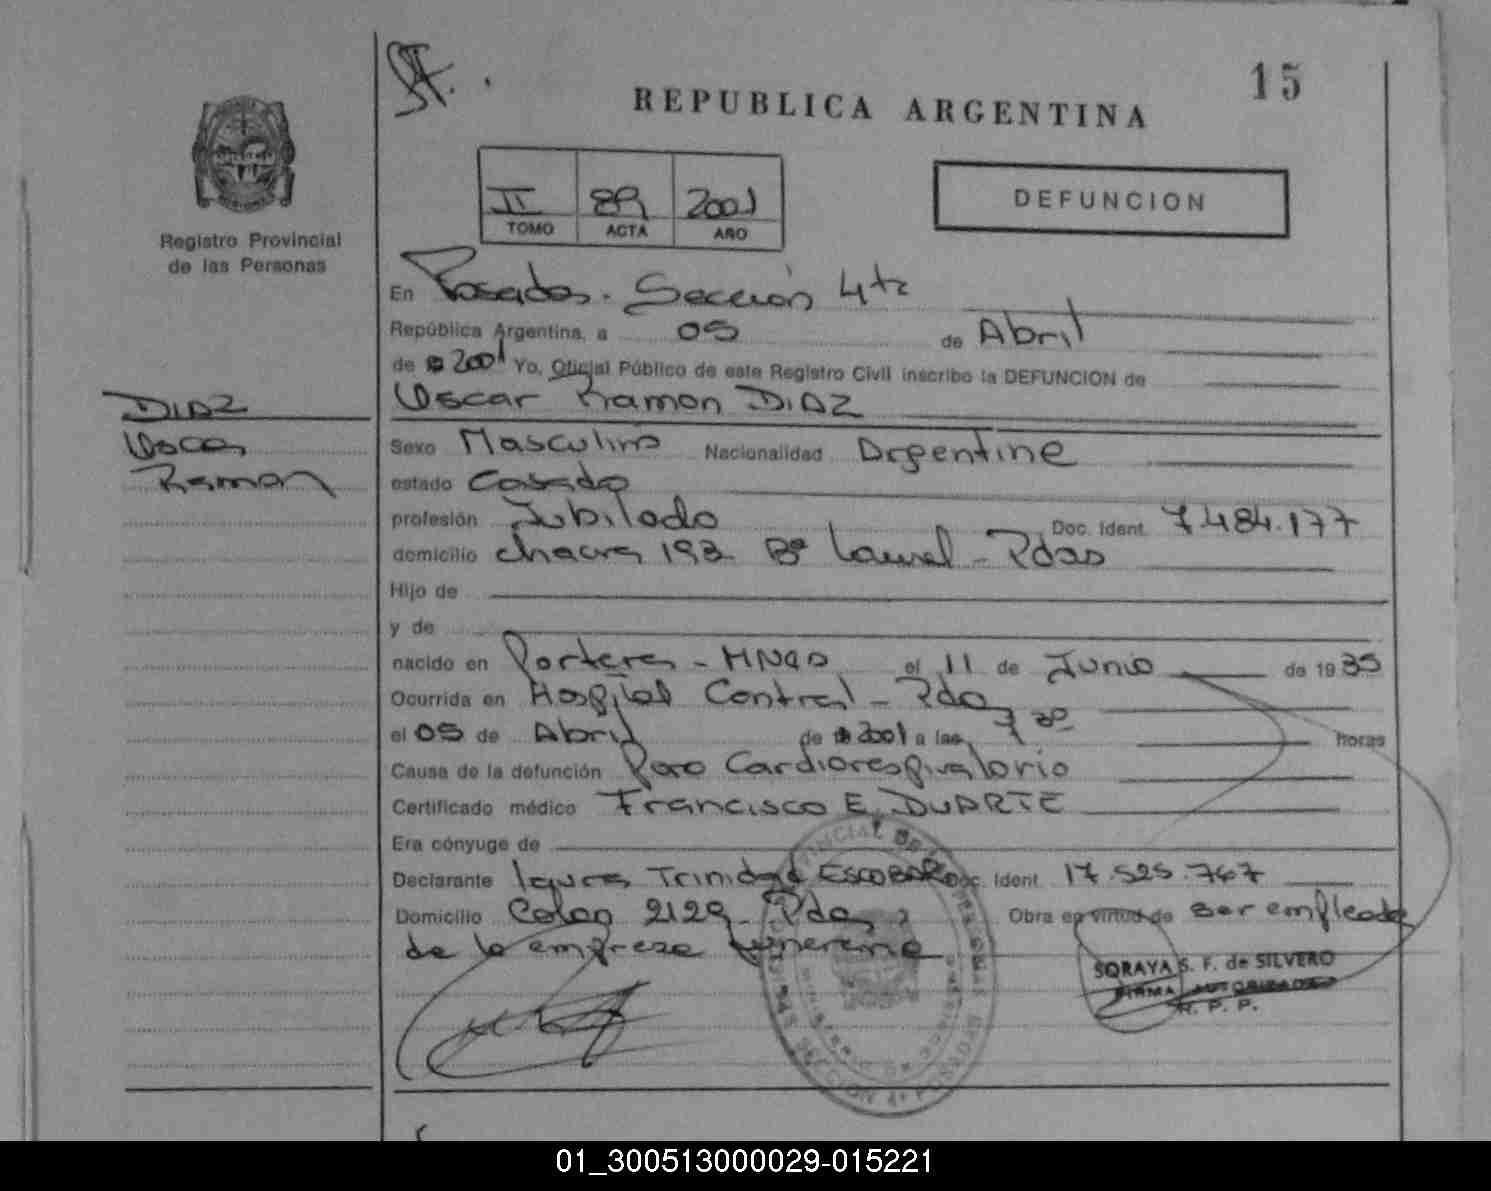 15
REPUBLICA ARGENTINA
DEFUNCION
II 89 2001
TOMO ACTA AÑO
Registro Provincial
de las Personas
En Posadas. Sección 4ta
República Argentina, a 05 de Abril
de 2001 Yo, Oficial Público de este Registro Civil inscribo la DEFUNCION de
DIAZ
Oscar Ramon DIAZ
Oscar
Ramon
Sexo Masculino Nacionalidad Argentine
estado Casado
profesión Jubilado Doc. Ident. 7.484.177
domicilio chacra 193 Bº Laurel - Pdas
Hijo de
y de
nacido en - MNES el 11 de Junio de 1935
Ocurrida en Hospital Central - Pdas
el 05 de Abril de 2001 a las 7 30 horas
Causa de la defunción Paro Cardiorespiratorio
Certificado médico Francisco E. DUARTE
Era cónyuge de
Declarante Laura Trinidad ESCOBAR Doc. Ident. 17.525.767
Domicilio Colon 2129 - Pdas Obra en virtud de ser empleada
de la empresa funeraria
SORAYA S. F. de SILVERO
FIRMA AUTORIZADA
R. P. P.
01_300513000029-015221